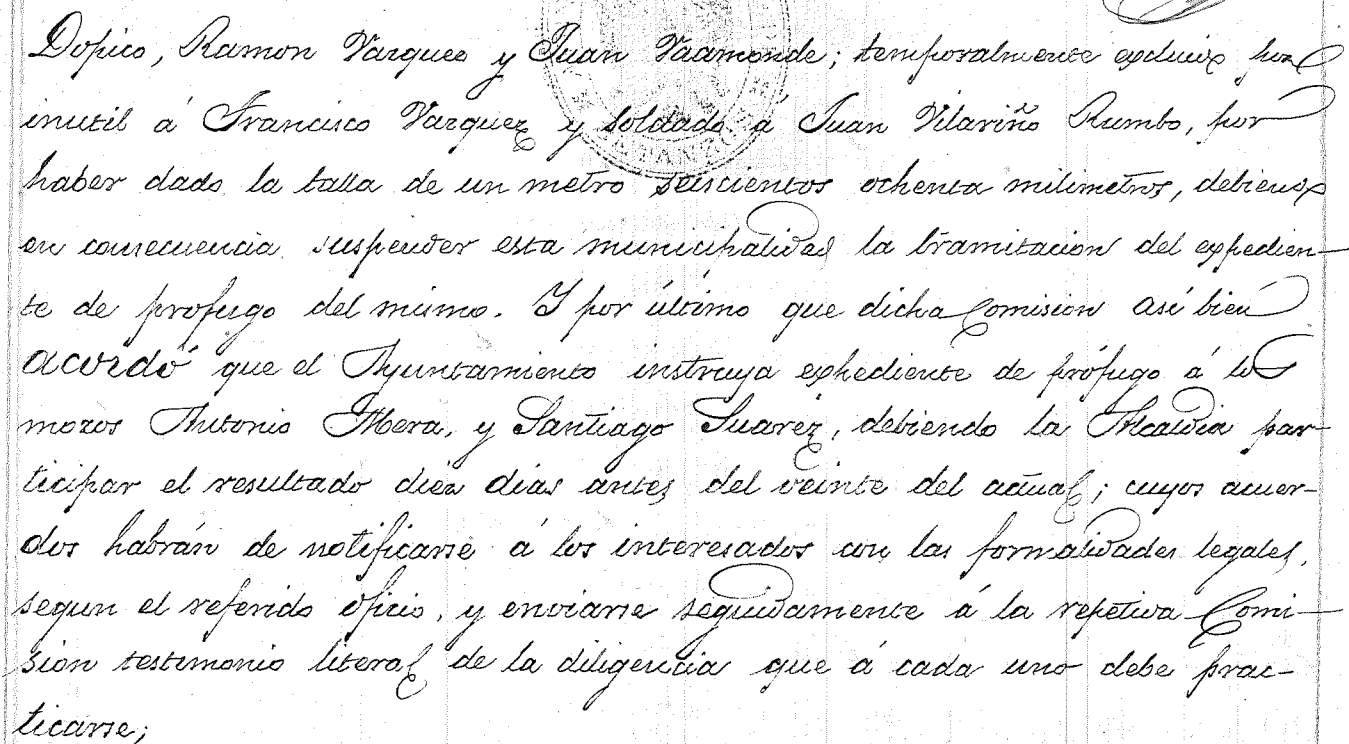 Dopico, Ramon Vazquez y Juan Vaamonde; temporalmente excluido por
inutil á Francisco Vazquez y soldado á Juan Vilariño Rumbo, por
haber dado la talla de un metro seiscientos ochenta milimetros, debiendo
en consecuencia suspender esta municipalidad la tramitacion del expedien-
te de profugo del mismo. Y por último que dicha Comision asi bien
acordó que el Ayuntamiento instruya expediente de prófugo á los
mozos Antonio Mera, y Santiago Suarez, debiendo la Alcaldia par-
ticipar el resultado diez dias antes del veinte del actual; cuyos acuer-
dos habrán de notificarse á los interesados con las formalidades legales,
segun el referido oficio, y enviarse seguidamente á la repetida Comi-
sion testimonio literal de la diligencia que á cada uno debe prac-
ticarse;